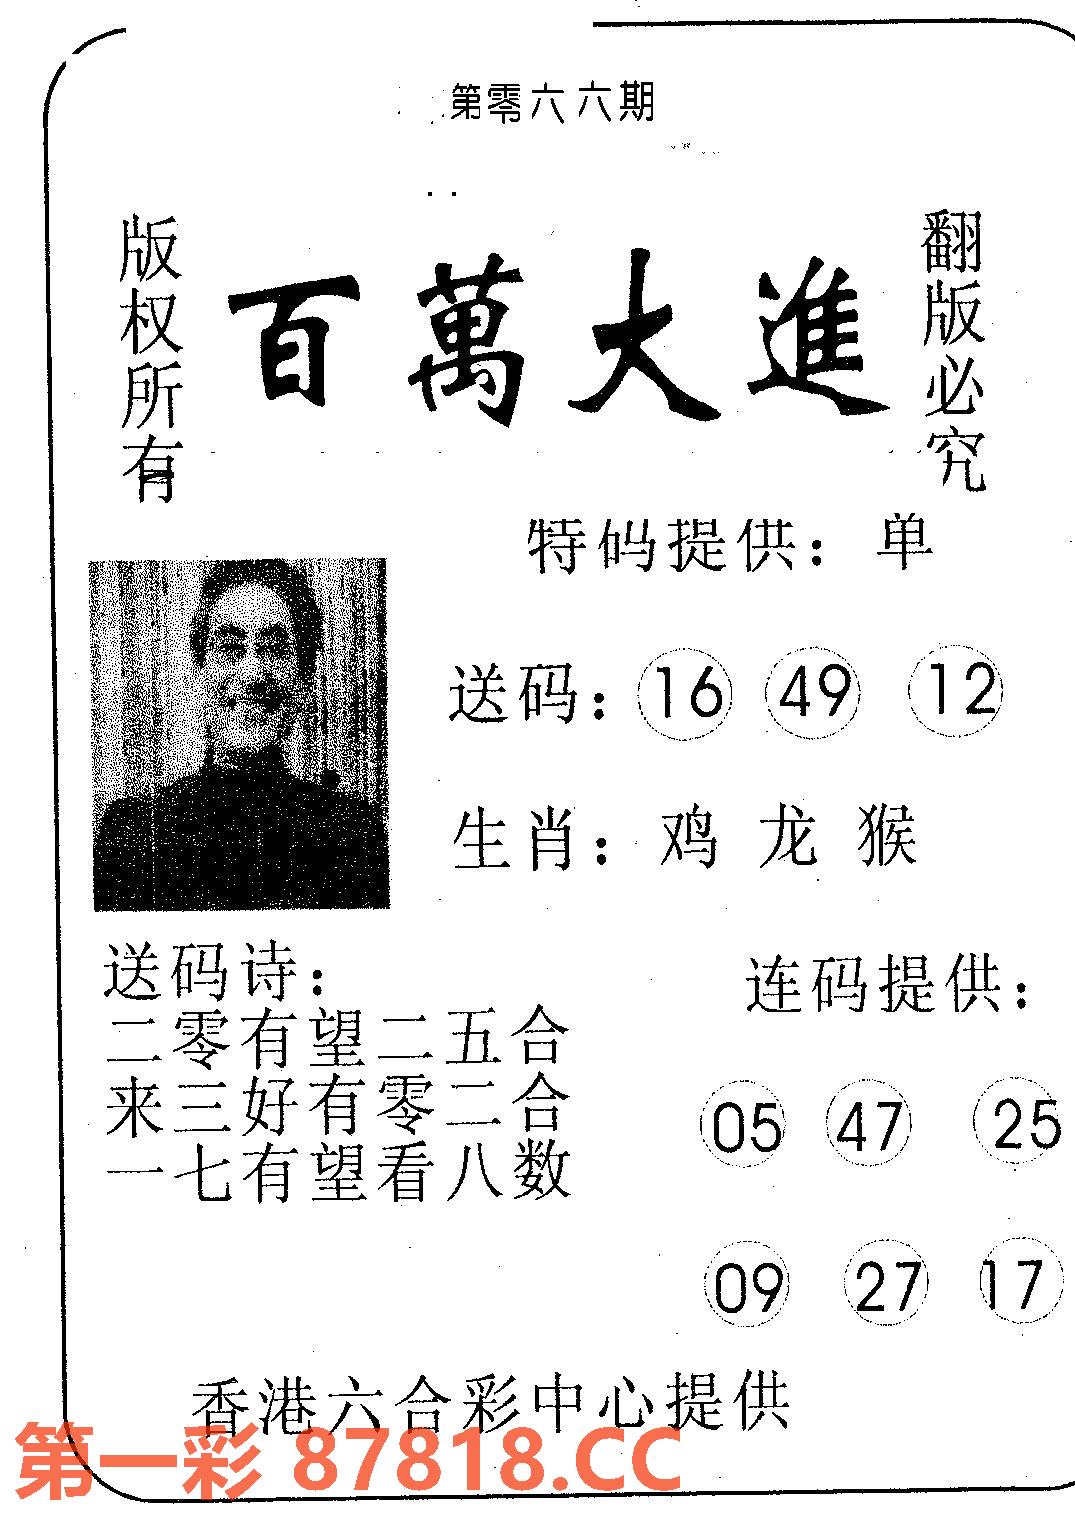 第零六六期
版权所有
百萬大進
翻版必究
特码提供：单
送码：16 49 12
生肖：鸡 龙 猴
送码诗：
二零有望二五合
来三好有零二合
一七有望看八数
连码提供：
05 47 25
09 27 17
香港六合彩中心提供
第一彩 87818.CC